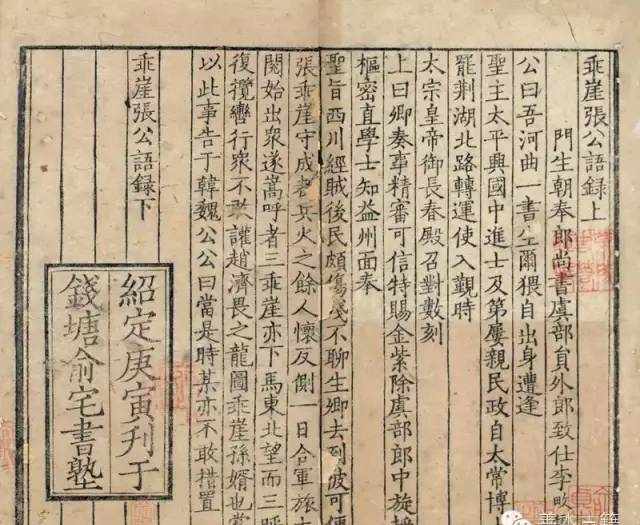 乖崖張公語録上
門生朝奉郎尚書虞部員外郎致仕李畋
公曰吾河曲一書生爾猥自出身遭逢
聖主太平興國中進士及第屢親民政自太常博
罷荆湖北路轉運使入覲時
太宗皇帝御長春殿召對數刻
上曰卿奏事精審可信特賜金紫除虞部郎中旋
樞密直學士知益州面奉
聖旨西川經賊後民頗傷殘不聊生卿去到彼可便
張乖崖守成都兵火之餘人懷反側一日合軍旅
閱始出衆遂嵩呼者三乖崖亦下馬東北望而三呼
復攬轡行衆不敢讙趙濟畏之龍圖乖崖孫婿也嘗
以此事告于韓魏公公曰當是時某亦不敢措置
乖崖張公語録下
紹定庚寅刋于
錢塘俞宅書塾